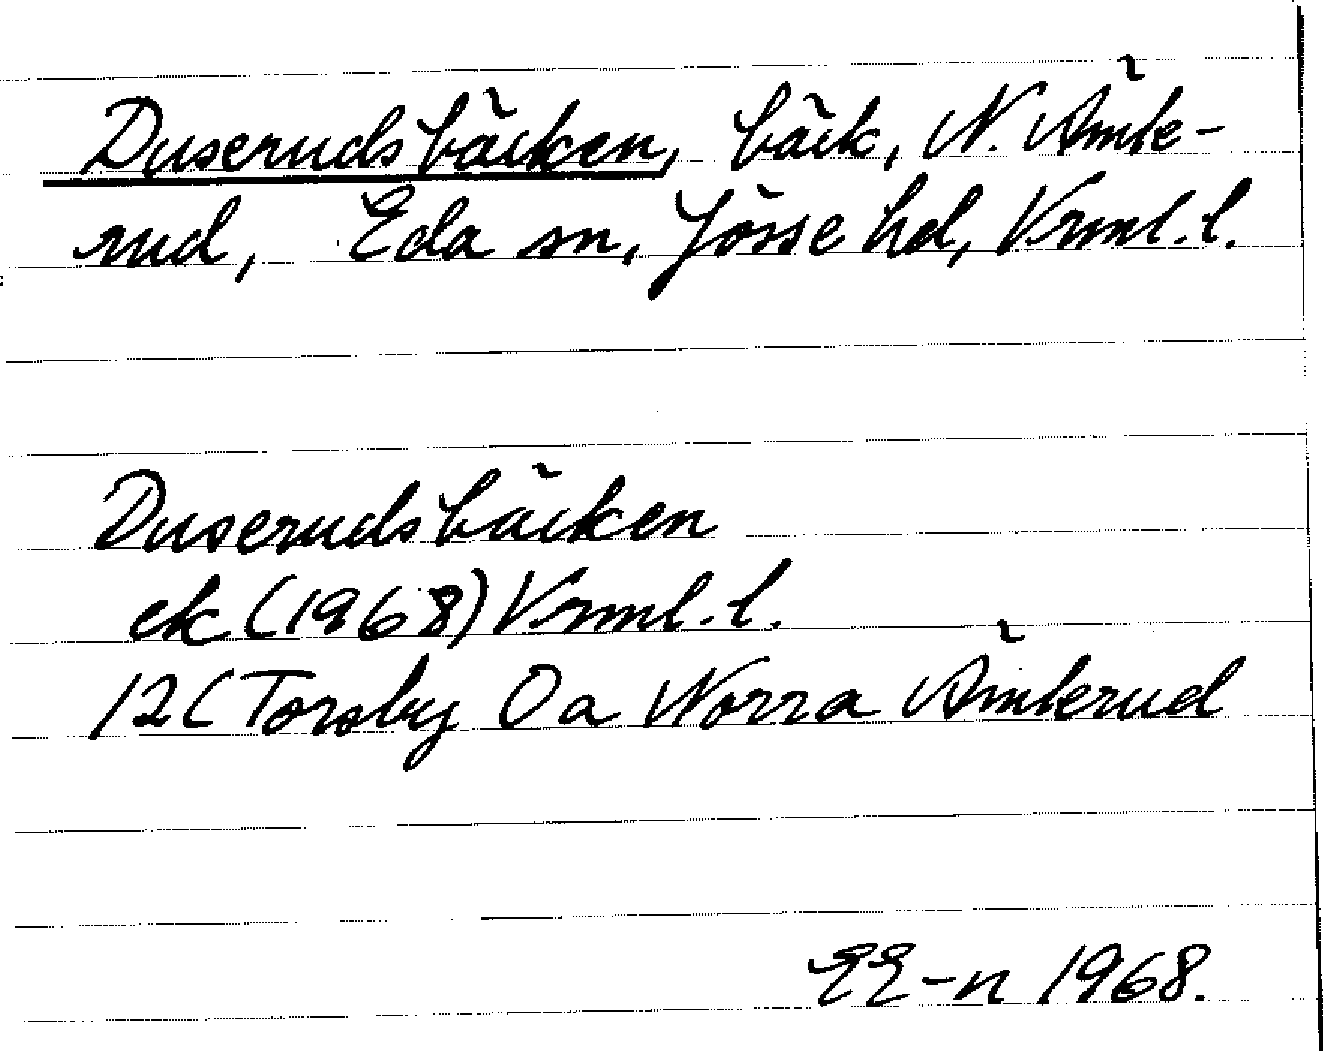 Duserudsbäcken, bäck, N. Ämte-
rud, Eda sn, Jösse hd, Vrml. l.
Duserudsbäcken
ek (1968) Vrml. l.
12C Torsby Oa Norra Ämterud
EE-n 1968.